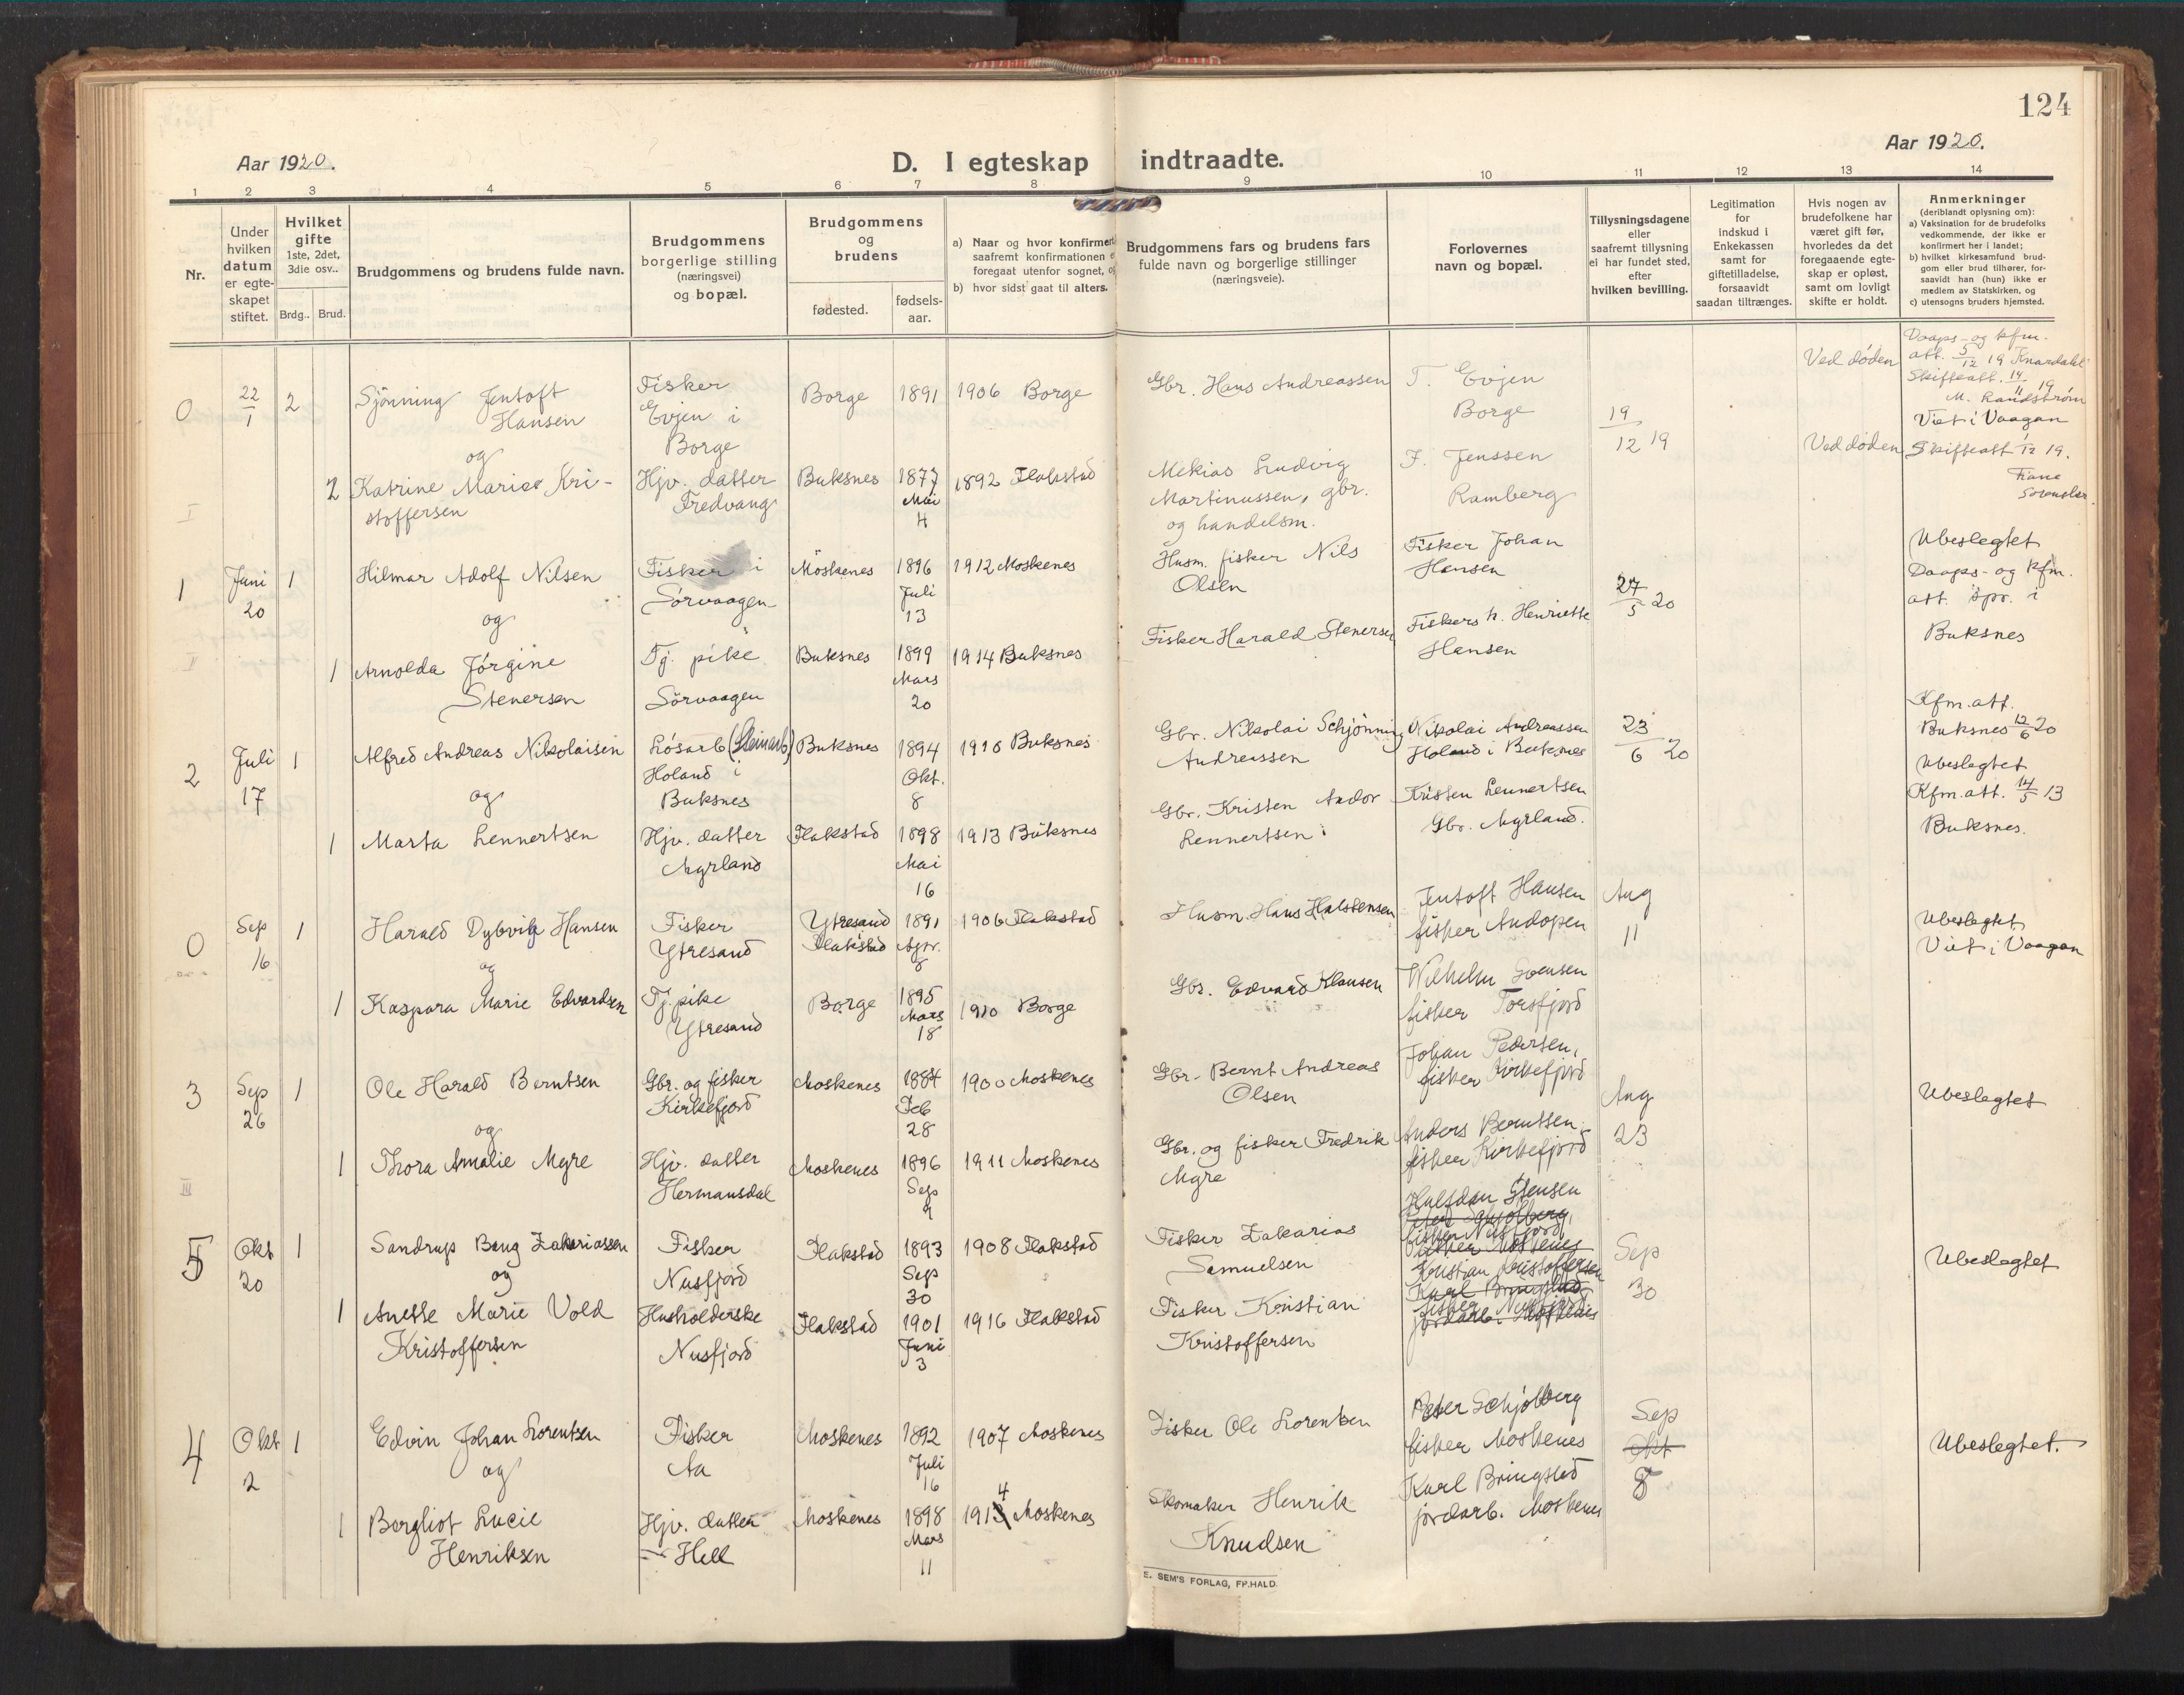 124
Aar 1920.
D. I egteskap indtraadte.
Aar 1920.
1 2 3 4 5 6 7 8 9 10 11 12 13 14
Nr.
Under hvilken datum er egteskapet stiftet.
Hvilket gifte 1ste, 2det, 3die osv..
Brdg.. Brud.
Brudgommens og brudens fulde navn.
Brudgommens borgerlige stilling (næringsvei) og bopæl.
Brudgommens og brudens
fødested.
fødsels-aar.
a) Naar og hvor konfirmert
saafremt konfirmationen e
foregaat utenfor sognet, og
b) hvor sidst gaat til alters.
Brudgommens fars og brudens fars
fulde navn og borgerlige stillinger
(næringsveie).
Forlovernes
navn og bopæl.
Tillysningsdagene
eller
saafremt tillysning
ei har fundet sted,
efter
hvilken bevilling.
Legitimation
for
indskud i
Enkekassen
samt for
giftetilladelse,
forsaavidt
saadan tiltrænges.
Hvis nogen av
brudefolkene har
været gift før,
hvorledes da det
foregaaende egte-
skap er opløst,
samt om lovligt
skifte er holdt.
Anmerkninger
(deriblandt oplysning om):
a) Vaksination for de brudefolks
vedkommende, der ikke er
konfirmert her i landet;
b) hvilket kirkesamfund brud-
gom eller brud tilhører, for-
saavidt han (hun) ikke er
medlem av Statskirken, og
c) utensogns bruders hjemsted.
0 22/1 2 Sjönning Jentoft
Hansen
og
Fisker
Evjen i
Borge
Borge 1891 1906 Borge
Gbr. Hans Andreassen
T. Evjen
Borge
19/12 19
Ved döden
Daaps- og kfm.
att. 5/12 19 Knardahl
Skifteatt. 14/11 19
M. Randstrøm
Viet i Vaagan
2 Katrine Marie Kri-
stoffersen
Hjv. datter
Fredvang
Buksnes 1877
Mai
4
1892 Flakstad
Mekias Ludvig
Martinussen, gbr.
og handelsm.
F. Jenssen
Ramberg
Ved döden
Skifteatt 1/12 19.
I
1 Juni
20
1 Hilmar Adolf Nilsen
og
Fisker i
Sörvaagen
Moskenes 1896
Juli
13
1912 Moskenes
Husm. fisker Nils
Olsen
Fisker Johan
Hansen
27/5 20
Ubeslegtet
Daaps- og kfm.
att. spr. i
Buksnes
II
1 Arnolda Jörgine
Stenersen
Tj. pike
Sörvaagen
Buksnes 1899
Mars
20
1914 Buksnes
Fisker Harald Stenersen
Fiskers h. Henriette
Hansen
2 Juli
17
1 Alfred Andreas Nikolaisen
og
Lösarb (Steinarb)
Holand i
Buksnes
Buksnes 1894
Okt.
8
1910 Buksnes
Gbr. Nikolai Schjönning
Andreassen
Nikolai Andreassen
Holand i Buksnes
23/6 20
Kfm. att.
Buksnes 12/6 20
Ubeslegtet
Kfm. att. 14/5 13
Buksnes.
1 Marta Lennertsen
Hjv. datter
Myrland
Flakstad 1898
Mai
16
1913 Buksnes
Gbr. Kristen Andor
Lennertsen
Kristen Lennertsen
Gbr. Myrland.
0 Sep
16
1 Harald Dybvik Hansen
og
Fisker
Ytresand
Ytresand
Flakstad
1891
Apr.
8
1906 Flakstad
Husm. Hans Halstensen
Jentoft Hansen
fisker Andopen
Aug
11
Ubeslegtet
Viet i Vaagan
1 Kaspara Marie Edvardsen
Tj. pike
Ytresand
Borge 1895
Mars
18
1910 Borge
Gbr. Edvard Klausen
Wilhelm Svensen
fisker Torsfjord
3 Sep
26
1 Ole Harald Berntsen
og
Gbr. og fisker
Kirkefjord
Moskenes 1884
Feb
28
1900 Moskenes
Gbr. Bernt Andreas
Olsen
Johan Pedersen,
fisker Kirkefjord
Aug
23
Ubeslegtet
III
1 Thora Amalie Myre
Hjv. datter
Hermansdal
Moskenes 1896
Sep
9
1911 Moskenes
Gbr. og fisker Fredrik
Myre
Anders Berntsen
fisker Kirkefjord
5 Okt
20
1 Sandrup Bang Zakariassen
og
Fisker
Nusfjord
Flakstad 1893
Sep
30
1908 Flakstad
Fisker Zakarias
Samuelsen
Halfdan
Peter Schjölberg,
fisker Nusfjord
fisker Moskenes
Sep
30
Ubeslegtet
1 Anette Marie Vold
Kristoffersen
Husholderske
Nusfjord
Flakstad 1901
Juni
3
1916 Flakstad
Fisker Kristian
Kristoffersen
Kristian Kristoffersen
Karl Bringslid
fisker Nusfjord
jordarb. Moskenes
4 Okt
2
1 Edvin Johan Lorentsen
og
Fisker
Aa
Moskenes 1892
Juli
16
1907 Moskenes
Fisker Ole Lorentsen
Peter Schjölberg
fisker Moskenes
Sep
Okt
8
Ubeslegtet.
1 Bergliot Lucie
Henriksen
Hjv. datter
Hell
Moskenes 1898
Mars
11
4
1913 Moskenes
Skomaker Henrik
Knudsen
Karl Bringslid
jordarb. Moskenes
E. SEM'S FORLAG, FP.HALD.